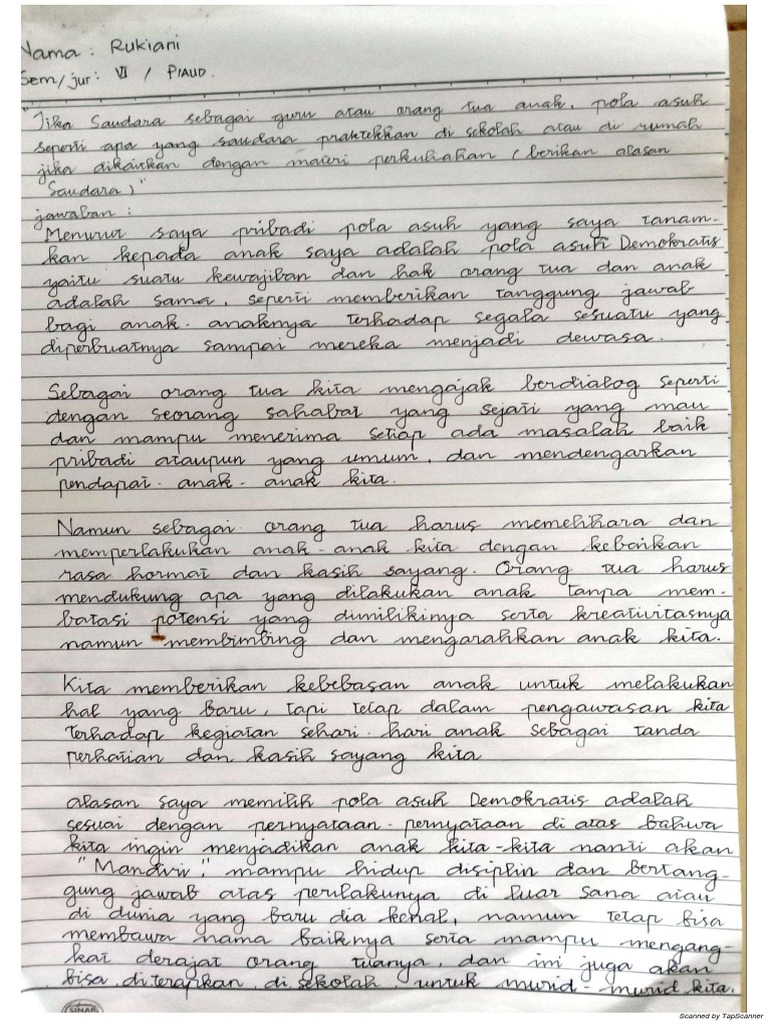 Nama : Rukiani
Sem/jur : VI / PIAUD.
"Jika Saudara sebagai guru atau orang tua anak, pola asuh
seperti apa yang saudara praktekkan di sekolah atau di rumah
jika dikaitkan dengan materi perkuliahan (berikan alasan
Saudara)"
jawaban :
Menurut saya pribadi pola asuh yang saya tanam-
kan kepada anak saya adalah pola asuh Demokratis
yaitu suatu kewajiban dan hak orang tua dan anak
adalah sama, seperti memberikan tanggung jawab
bagi anak-anaknya terhadap segala sesuatu yang
diperbuatnya sampai mereka menjadi dewasa.
Sebagai orang tua kita mengajak berdialog seperti
dengan seorang sahabat yang sejati yang mau
dan mampu menerima setiap ada masalah baik
pribadi ataupun yang umum, dan mendengarkan
pendapat anak-anak kita.
Namun sebagai orang tua harus memelihara dan
memperlakukan anak-anak kita dengan kebaikan
rasa hormat dan kasih sayang. Orang tua harus
mendukung apa yang dilakukan anak tanpa mem-
batasi potensi yang dimilikinya serta kreativitasnya
namun membimbing dan mengarahkan anak kita.
Kita memberikan kebebasan anak untuk melakukan
hal yang baru, tapi tetap dalam pengawasan kita
terhadap kegiatan sehari-hari anak sebagai tanda
perhatian dan kasih sayang kita
alasan saya memilih pola asuh Demokratis adalah
sesuai dengan pernyataan-pernyataan di atas bahwa
kita ingin menjadikan anak kita-kita nanti akan
"Mandiri," mampu hidup disiplin dan bertang-
gung jawab atas perilakunya di luar sana atau
di dunia yang baru dia kenal, namun tetap bisa
membawa nama baiknya serta mampu mengang-
kat derajat orang tuanya, dan ini juga akan
bisa diterapkan di sekolah untuk murid-murid kita.
SINAR
Scanned by TapScanner